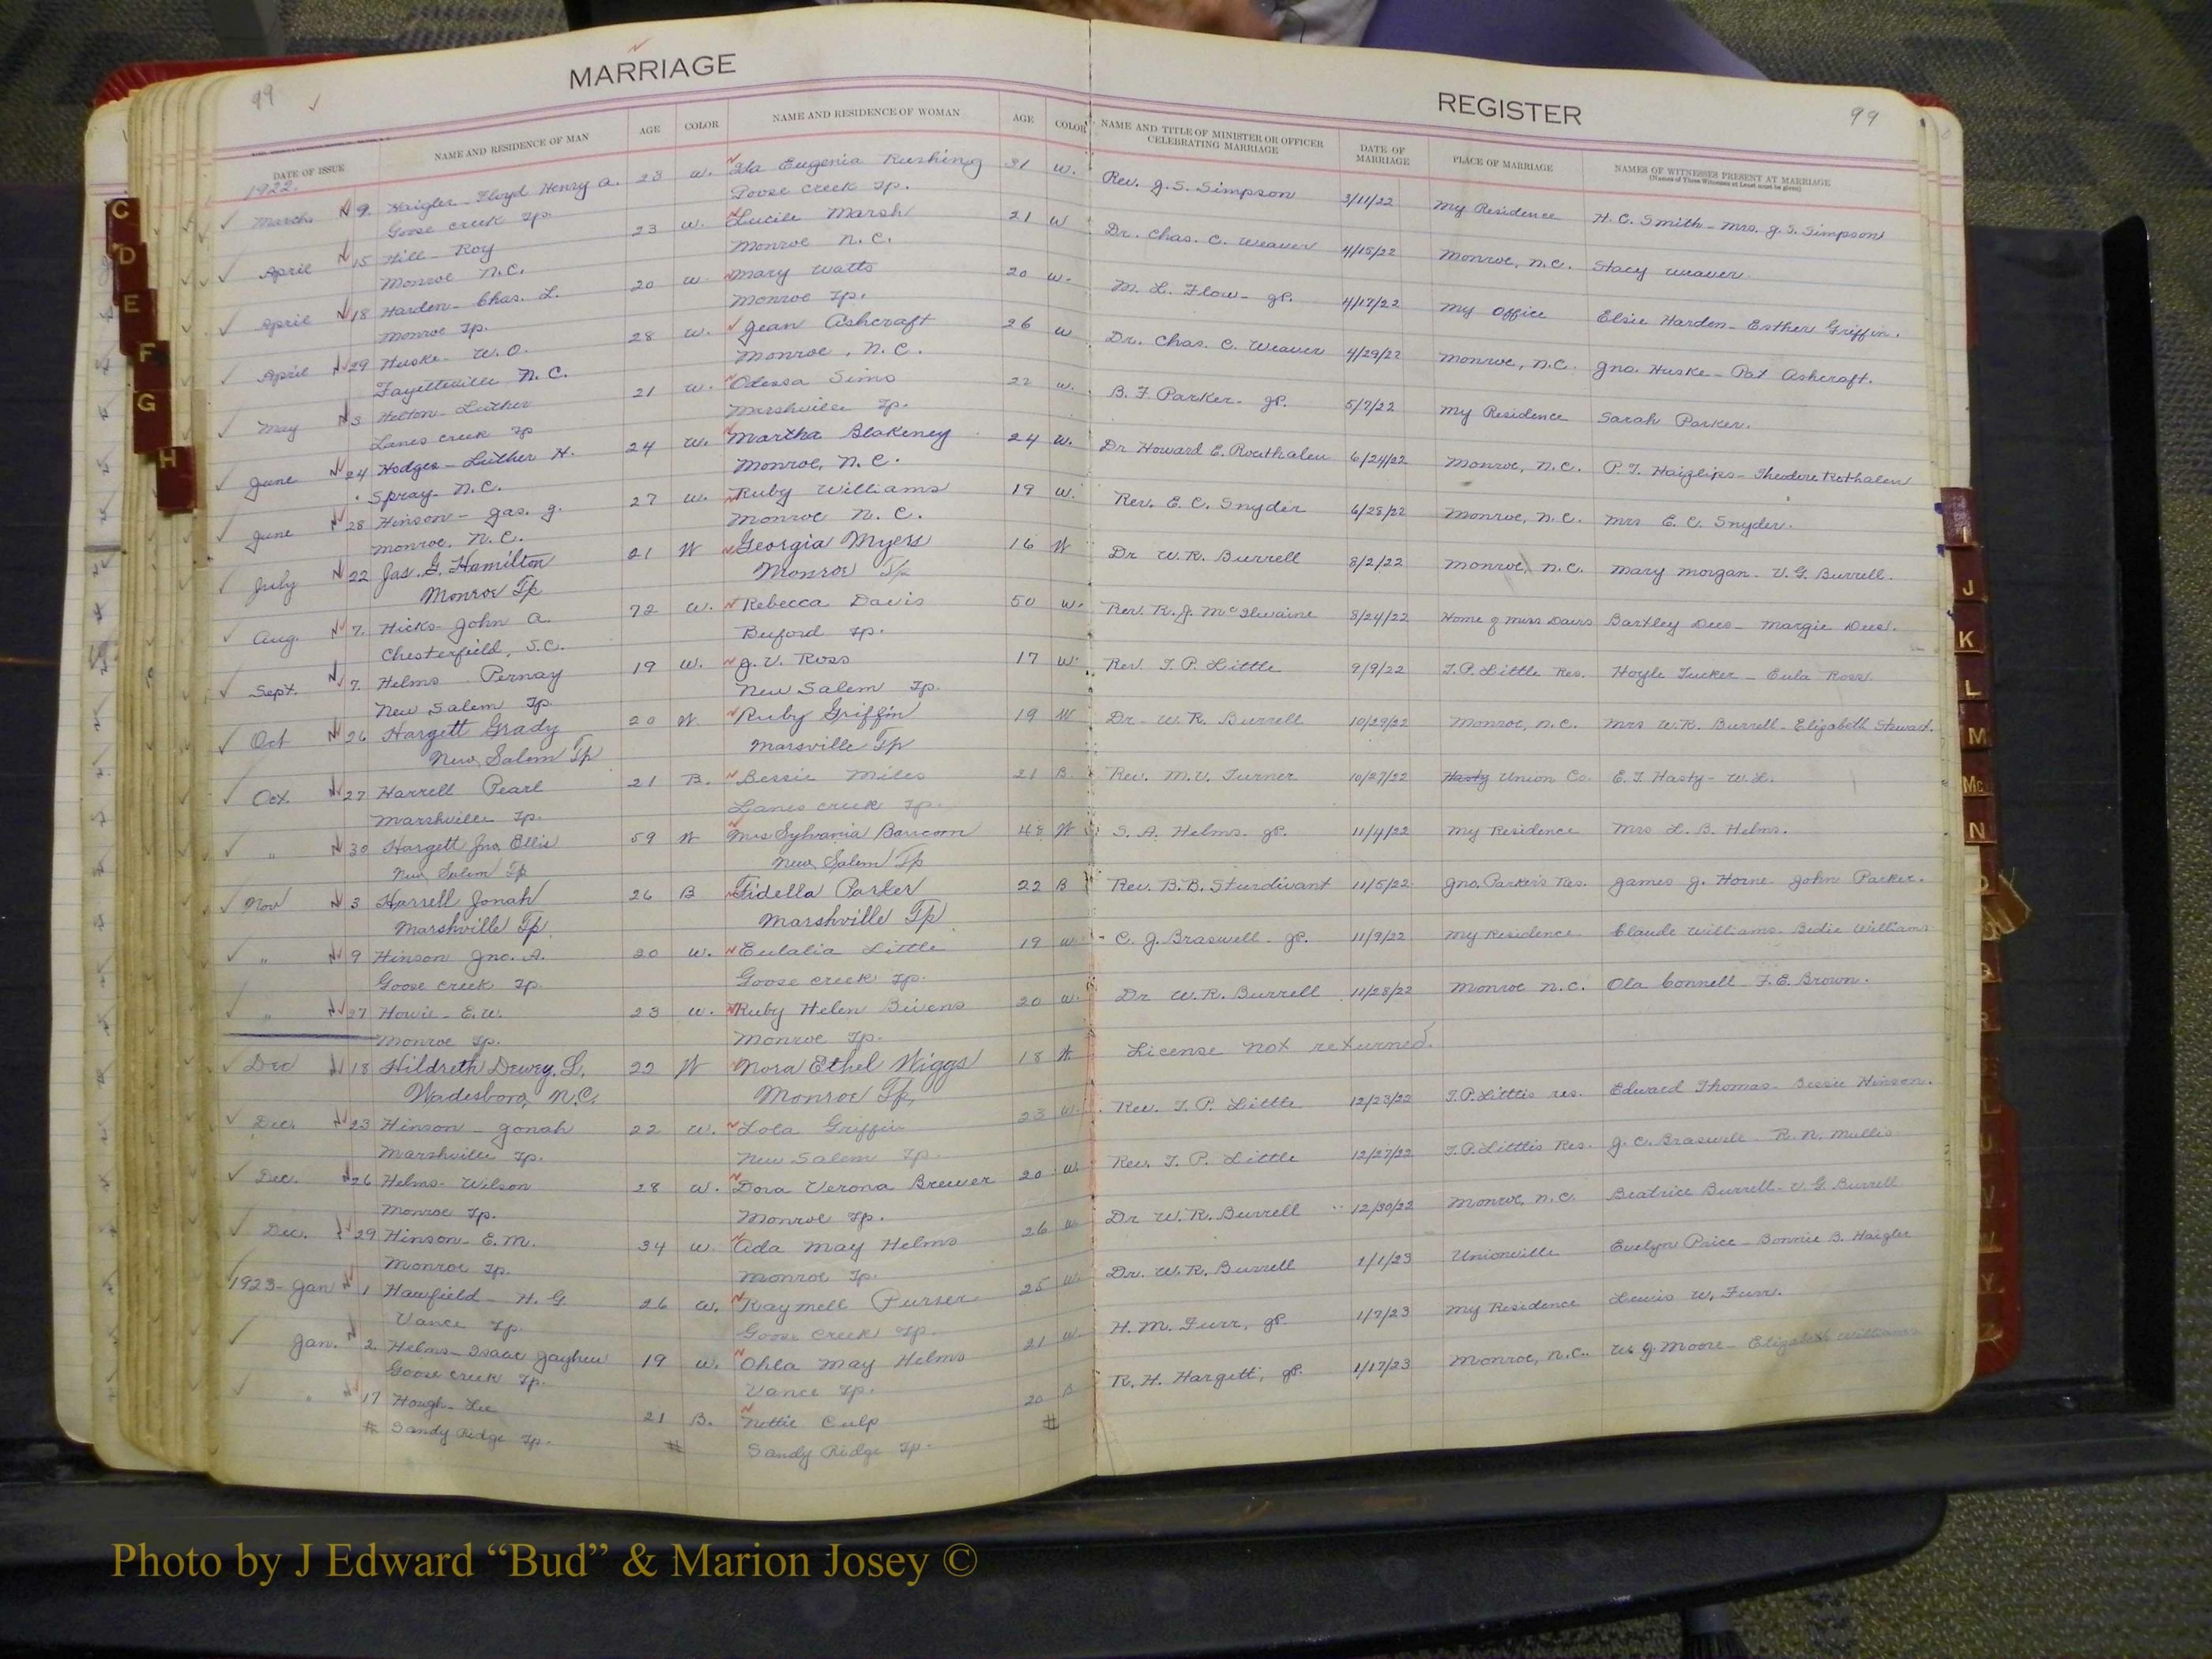 99 MARRIAGE REGISTER 99
DATE OF ISSUE NAME AND RESIDENCE OF MAN AGE COLOR NAME AND RESIDENCE OF WOMAN AGE COLOR NAME AND TITLE OF MINISTER OR OFFICER CELEBRATING MARRIAGE DATE OF MARRIAGE PLACE OF MARRIAGE NAMES OF WITNESSES PRESENT AT MARRIAGE
(Names of Three Witnesses at Least must be given)
1922.
March 9. Haigler - Floyd Henry A. 23 W. Ila Eugenia Rushing 31 W. Rev. J. S. Simpson 3/11/22 My Residence H. C. Smith - Mrs. J. S. Simpson
Goose Creek Tp. Goose Creek Tp.
April 15 Hill - Roy 23 W. Lucile Marsh 21 W Dr. Chas. C. Weaver 4/15/22 Monroe, N.C. Stacy Weaver
Monroe N.C. Monroe N.C.
April 18 Harden - Chas. L. 20 W Mary Watts 20 W. M. L. Flow - JP. 4/17/22 My Office Elsie Harden - Esther Griffin.
Monroe Tp. Monroe Tp.
April 29 Huske - W. O. 28 W. Jean Ashcraft 26 W Dr. Chas. C. Weaver 4/29/22 Monroe, N.C. Jno. Huske - Pat Ashcraft.
Fayetteville N.C. Monroe, N.C.
May 3 Helton - Luther 21 W. Odessa Sims 22 W. B. F. Parker - JP. 5/7/22 My Residence Sarah Parker.
Lanes Creek Tp Marshville Tp.
June 24 Hodges - Luther H. 24 W. Martha Blakeney 24 W. Dr Howard E. Routhaleu 6/24/22 Monroe, N.C. P. T. Haizlips - Theodore Rothalen
Spray - N.C. Monroe, N.C.
June 28 Hinson - Jas. J. 27 W. Ruby Williams 19 W. Rev. E. C. Snyder 6/28/22 Monroe, N.C. Mrs E. C. Snyder.
Monroe, N.C. Monroe N.C.
July 22 Jas. G. Hamilton 21 W Georgia Myers 16 W Dr W. R. Burrell 8/2/22 Monroe, N.C. Mary Morgan. V. G. Burrell.
Monroe Tp Monroe Tp
Aug. 7. Hicks - John A. 72 W. Rebecca Davis 50 W. Rev. R. J. McIlwaine 8/24/22 Home of Miss Davis Bartley Dees - Margie Dees.
Chesterfield, S.C. Buford Tp.
Sept. 7. Helms Pernay 19 W. J. V. Ross 17 W. Rev. T. P. Little 9/9/22 T. P. Little Res. Hoyle Tucker - Eula Ross
New Salem Tp. New Salem Tp.
Oct 26 Hargett Grady 20 W Ruby Griffin 19 W Dr. W. R. Burrell 10/29/22 Monroe, N.C. Mrs W. R. Burrell - Elizabeth Stewart.
New Salem Tp Marsville Tp
Oct. 27 Harrell Pearl 21 B. Bessie Miles 21 B. Rev. M. V. Turner 10/27/22 Hasty Union Co. E. T. Hasty - W. L.
Marshville Tp. Lanes Creek Tp.
" 30 Hargett Jno Ellis 59 W Mrs Sylvania Baucom 48 W S. A. Helms. JP. 11/4/22 My Residence Mrs L. B. Helms.
New Salem Tp New Salem Tp
Nov 3 Harrell Jonah 26 B Fidella Parker 22 B Rev. B. B. Sturdivant 11/5/22 Jno. Parker's Res. James J. Horne John Parker.
Marshville Tp. Marshville Tp
" 9 Hinson Jno. A. 20 W. Eulalia Little 19 W. C. J. Braswell. JP. 11/9/22 My Residence Claude Williams. Bedie Williams
Goose Creek Tp. Goose Creek Tp.
" 27 Howie - E. W. 23 W. Ruby Helen Bivens 20 W. Dr W. R. Burrell 11/28/22 Monroe N.C. Ola Connell F. E. Brown.
Monroe Tp. Monroe Tp.
Dec 18 Hildreth Dewey L. 22 W Nora Ethel Wiggs 18 W License not returned.
Wadesboro, N.C. Monroe Tp.
Dec. 23 Hinson - Jonah 22 W. Lola Griffin 23 W. Rev. T. P. Little 12/23/22 T. P. Littles res. Edward Thomas - Bessie Hinson.
Marshville Tp. New Salem Tp.
Dec. 26 Helms - Wilson 28 W. Dora Verona Brewer 20 W. Rev. T. P. Little 12/27/22 T. P. Littles Res. J. C. Braswell - R. N. Mullis
Monroe Tp. Monroe Tp.
Dec. 29 Hinson - E. M. 34 W. Ada May Helms 26 W Dr W. R. Burrell 12/30/22 Monroe, N.C. Beatrice Burrell - V. G. Burrell
Monroe Tp. Monroe Tp.
1923 - Jan 1 Hawfield - H. G. 26 W. Raymell Purser 25 W. Dr. W. R. Burrell 1/1/23 Unionville Evelyn Price - Bonnie B. Haigler
Vance Tp. Goose Creek Tp.
Jan. 2 Helms - Isaac Jayhew 19 W. Ohla May Helms 21 W. H. M. Furr, JP. 1/7/23 My Residence Lewis W. Furr.
Goose Creek Tp. Vance Tp.
" 17 Hough - Lee 21 B. Nettie Culp 20 B R. H. Hargett, JP. 1/17/23 Monroe, N.C. W. J. Moore - Elizabeth Williams
# Sandy Ridge Tp. # Sandy Ridge Tp. #
C
D
E
F
G
H
I
J
K
L
M
Mc
N
Photo by J Edward “Bud” & Marion Josey ©